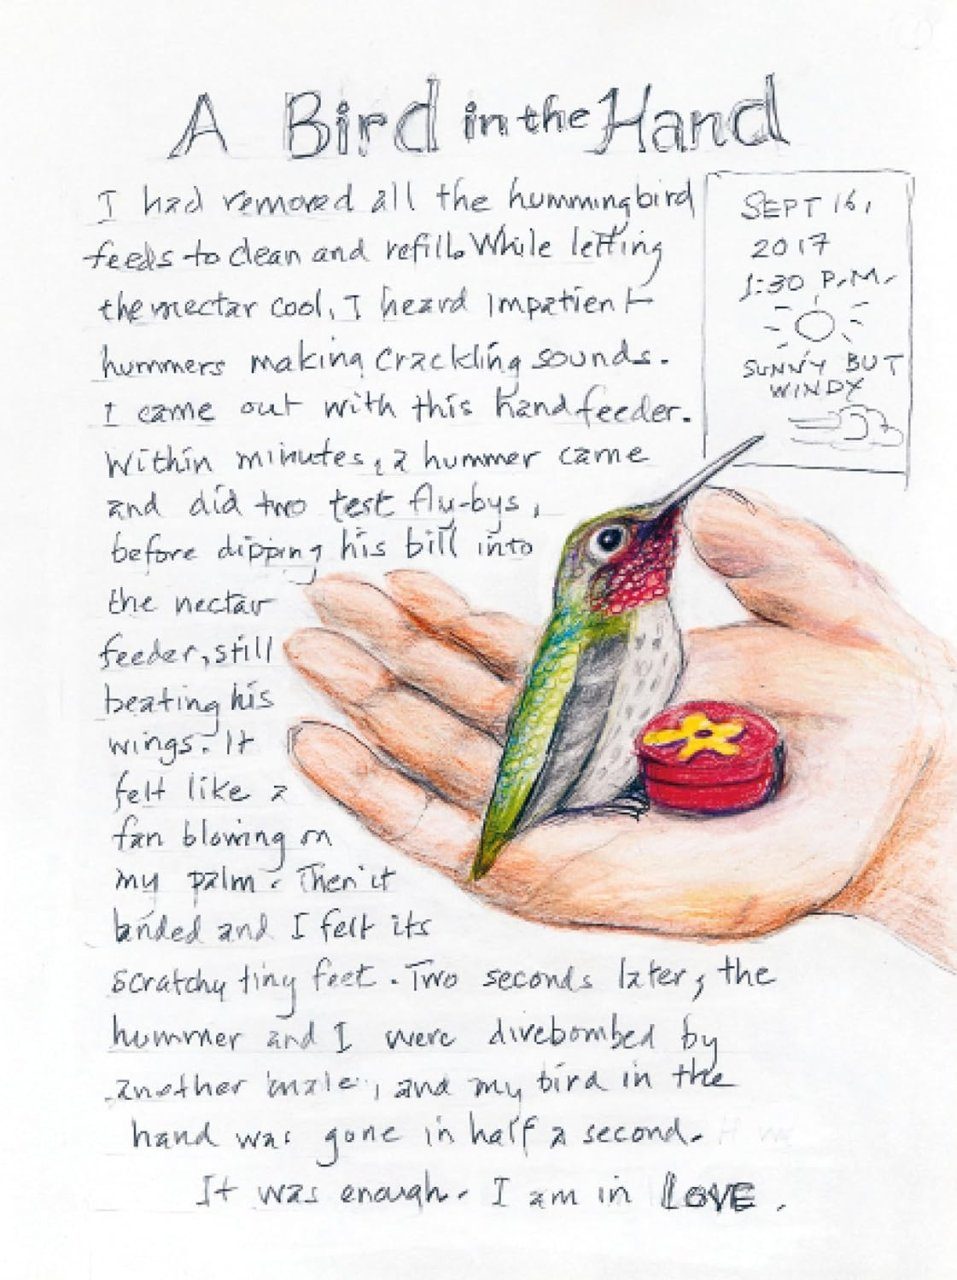 A Bird in the Hand
I had removed all the hummingbird
feeds to clean and refill. While letting
the nectar cool, I heard impatient
hummers making crackling sounds.
I came out with this handfeeder.
Within minutes, a hummer came
and did two test flu-bys,
before dipping his bill into
the nectar
feeder, still
beating his
wings. It
felt like a
fan blowing on
my palm. Then it
landed and I felt its
scratchy tiny feet. Two seconds later, the
hummer and I were divebombed by
another male, and my bird in the
hand was gone in half a second.
It was enough. I am in LOVE.
SEPT 16,
2017
1:30 P.M.
SUNNY BUT
WINDY